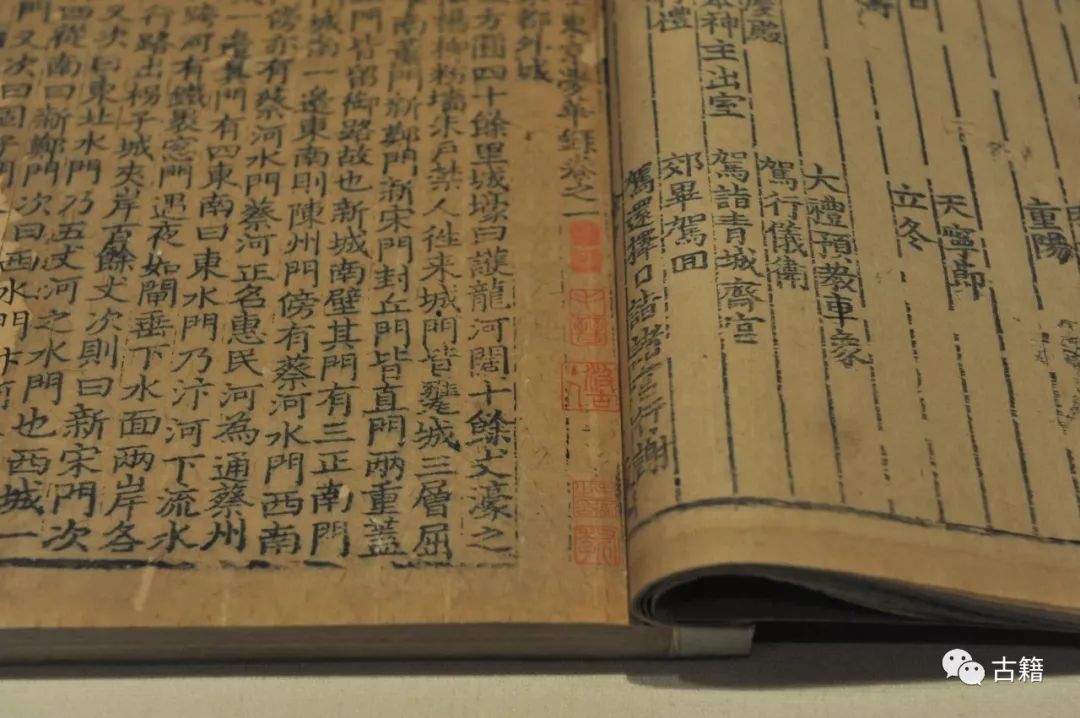 重陽
天寧節
立冬
大禮預教車象
殿 駕行儀衛
神主出室 駕詣青城齋宮
禮 郊畢駕回
駕還擇日詣諸宮行謝
東京夢華錄卷之一
都外城
方圓四十餘里城壕曰護龍河闊十餘丈濠之
楊柳粉墻朱戶禁人徃來城門皆甕城三層屈
南薰門新鄭門新宋門封丘門皆直門兩重蓋
門皆留御路故也新城南壁其門有三正南門
城南一邊東南則陳州門傍有蔡河水門西南
傍亦有蔡河水門蔡河正名惠民河為通蔡州
一邊其門有四東南曰東水門乃汴河下流水
跨河有鐵裹窓門遇夜如閘垂下水面兩岸各
行路出柺子城夾岸百餘丈次則曰新宋門次
又次曰東北水門乃五丈河之水門也西城一
從南曰新鄭門次曰西水門汴河
門又次曰固子門
古籍